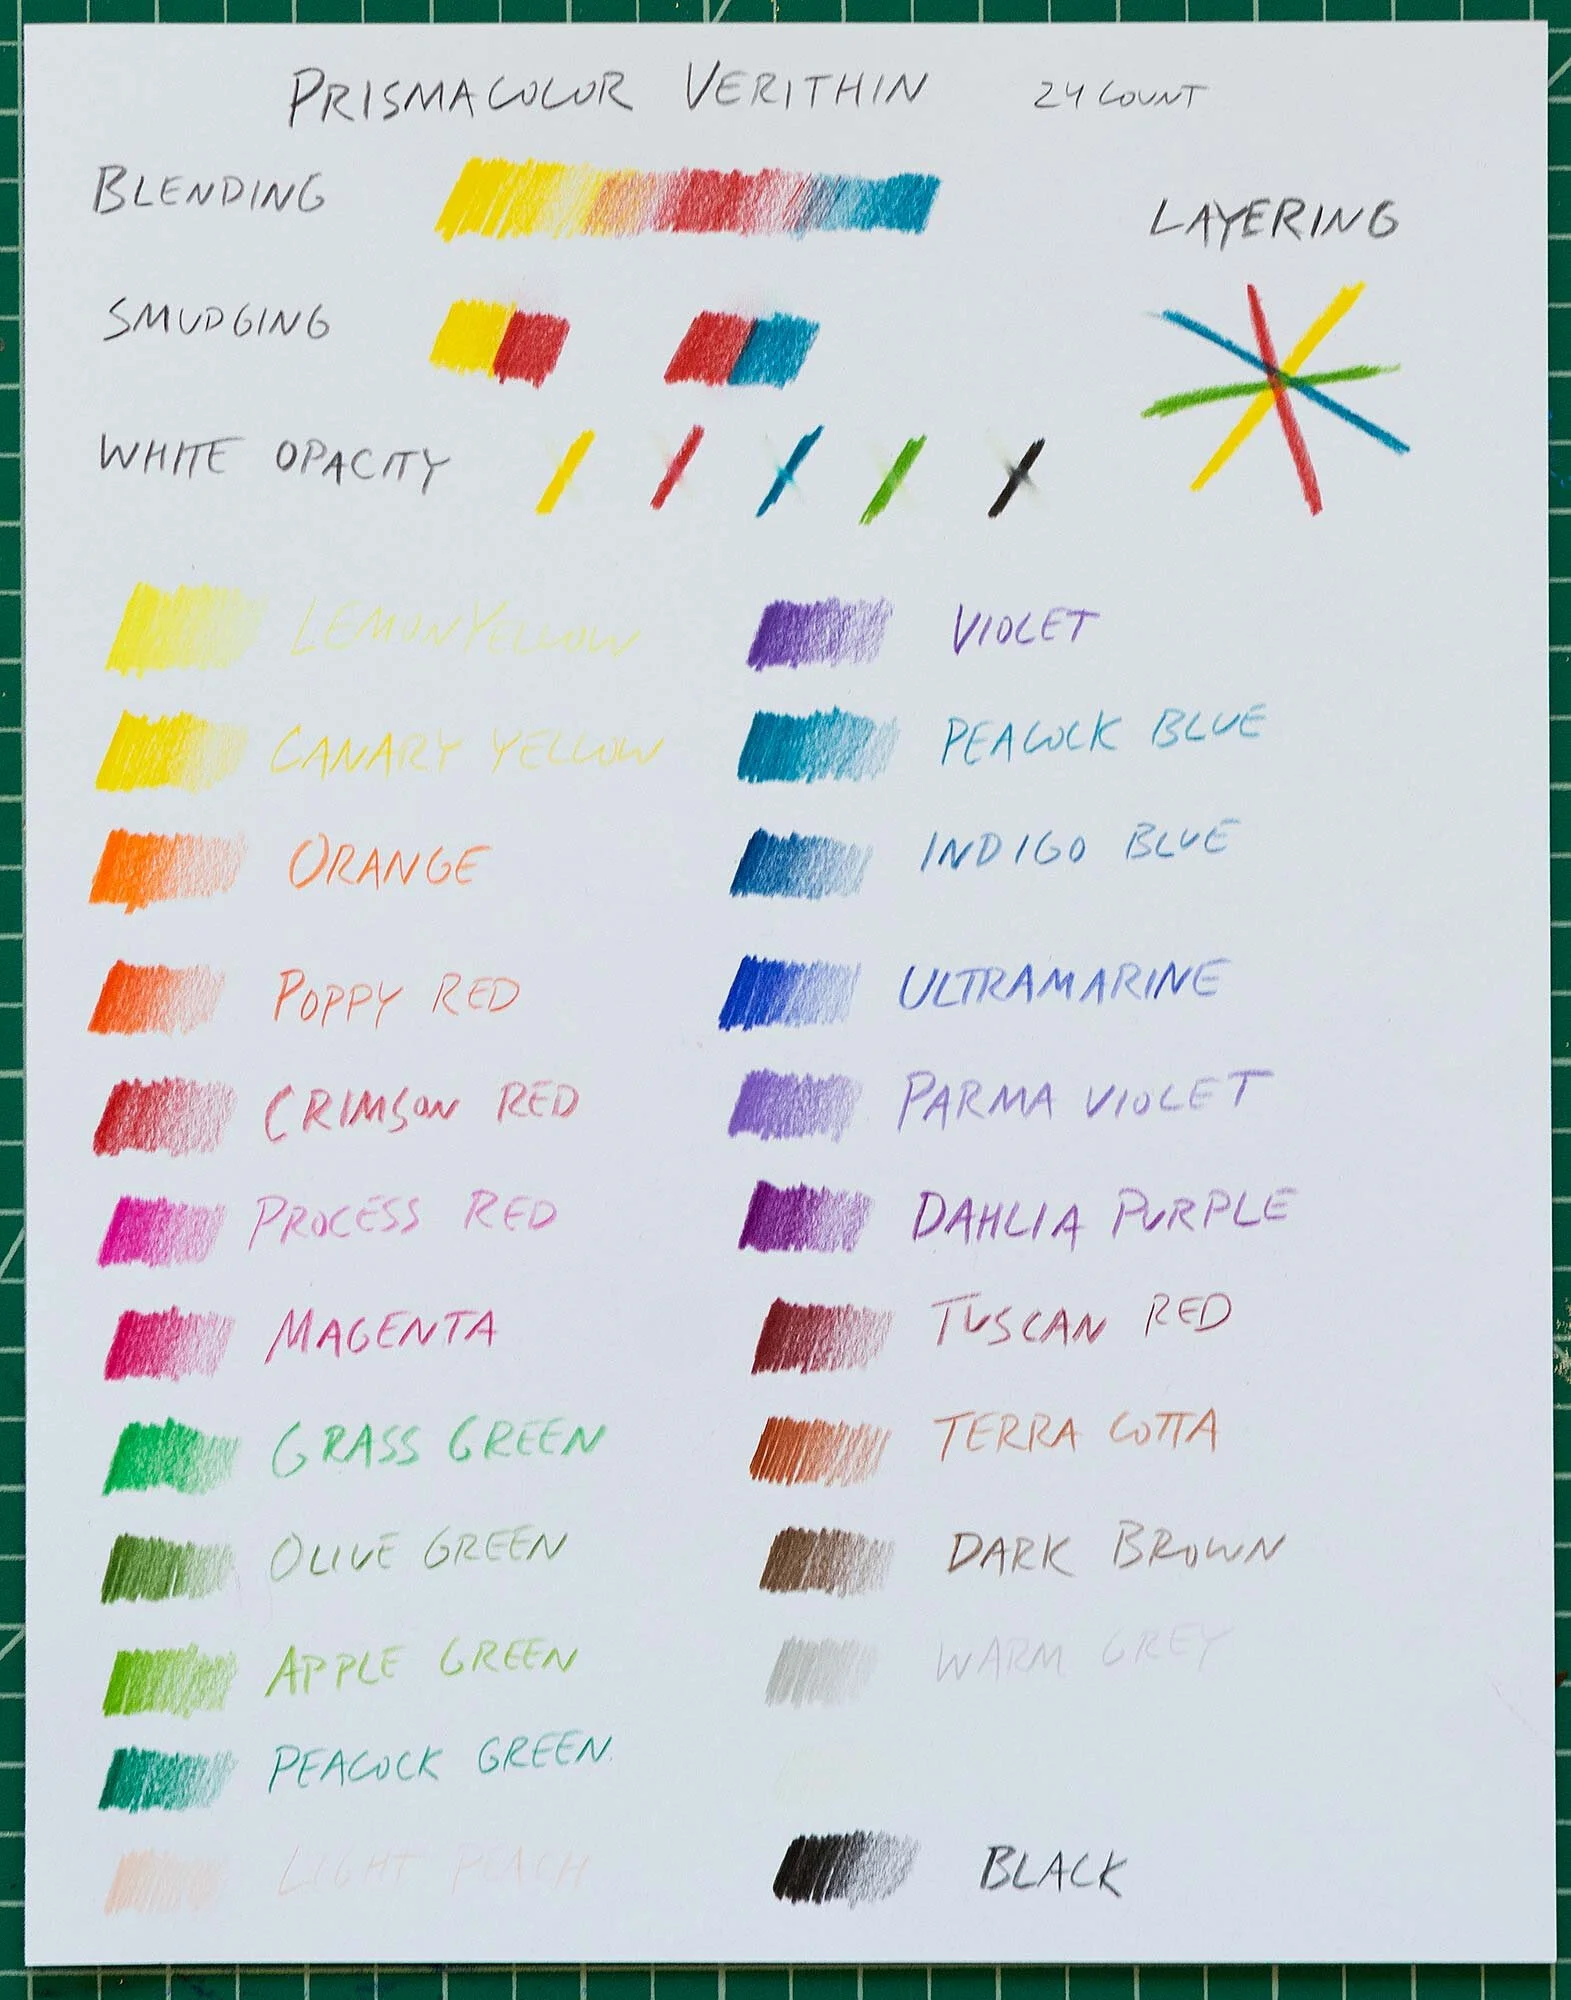 PRISMACOLOR VERITHIN 24 COUNT
BLENDING
LAYERING
SMUDGING
WHITE OPACITY
LEMON YELLOW
CANARY YELLOW
ORANGE
POPPY RED
CRIMSON RED
PROCESS RED
MAGENTA
GRASS GREEN
OLIVE GREEN
APPLE GREEN
PEACOCK GREEN.
LIGHT PEACH
VIOLET
PEACOCK BLUE
INDIGO BLUE
ULTRAMARINE
PARMA VIOLET
DAHLIA PURPLE
TUSCAN RED
TERRA COTTA
DARK BROWN
WARM GREY
BLACK